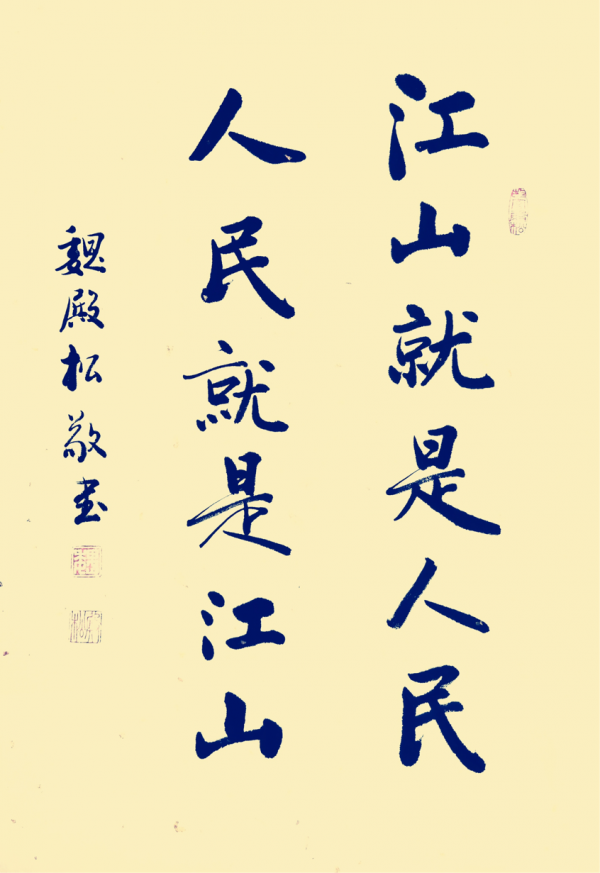 江山就是人民
人民就是江山
魏殿松敬书